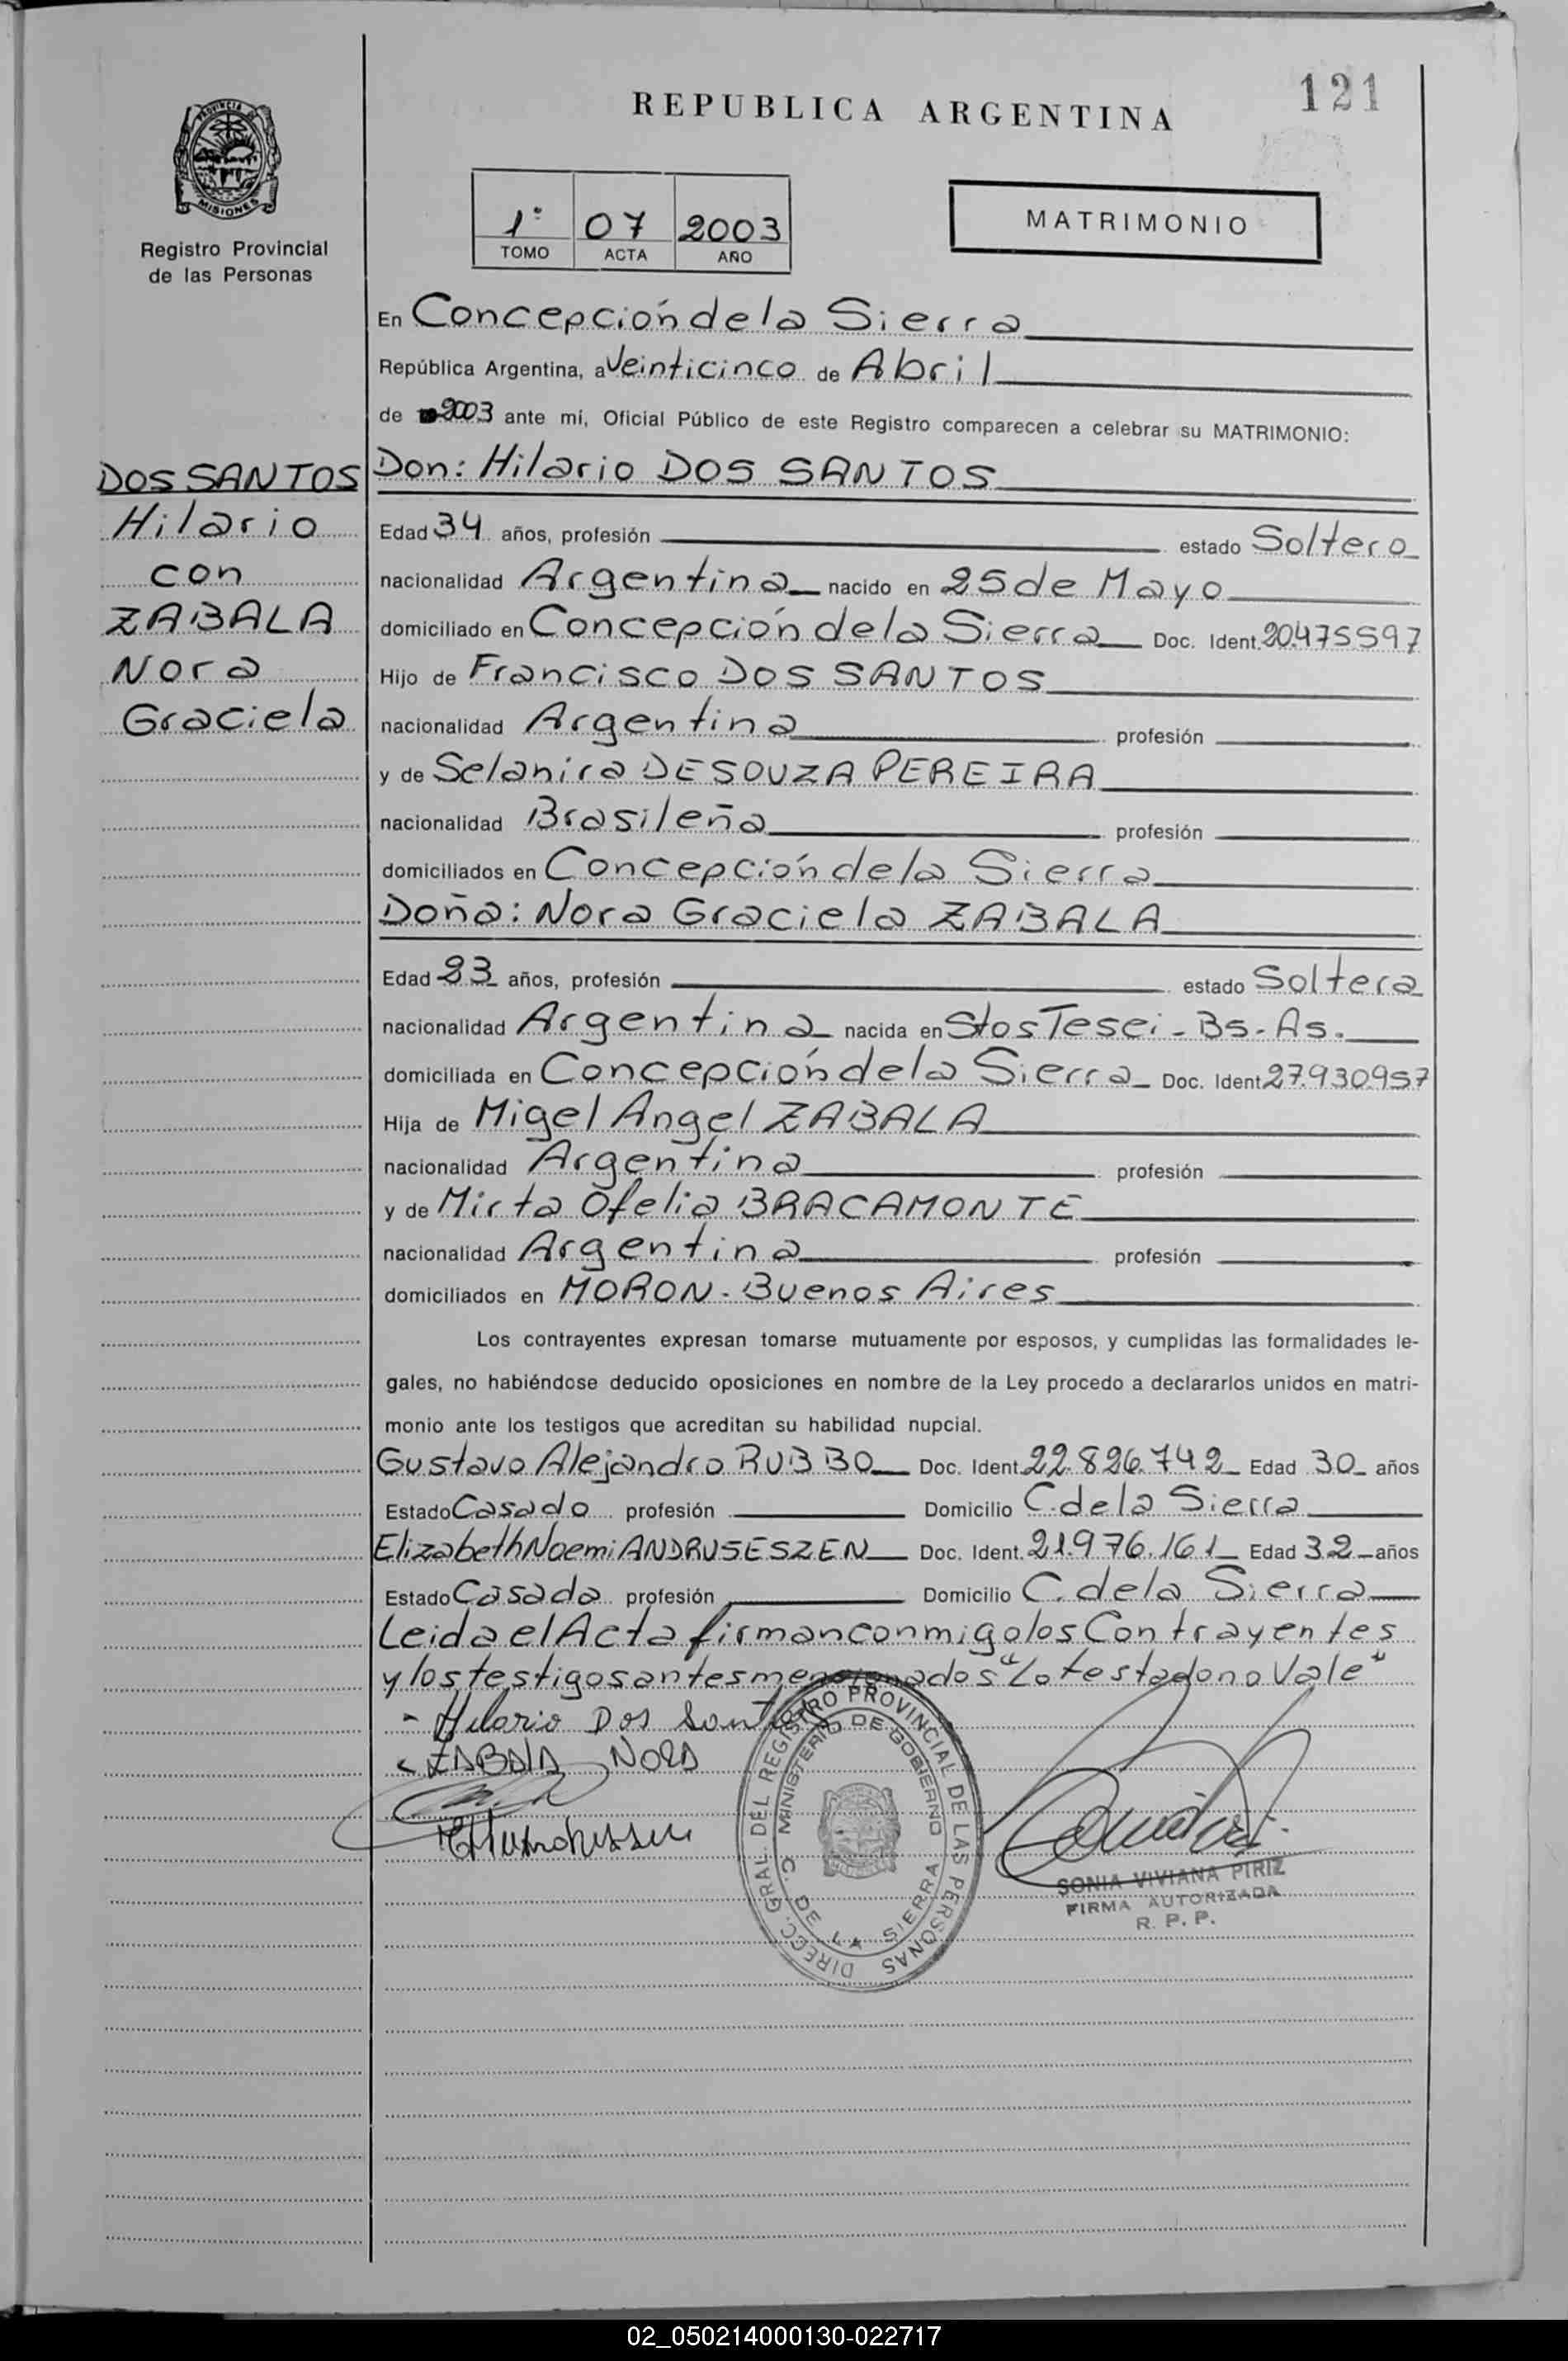 121
REPUBLICA ARGENTINA
PROVINCIA
MISIONES
Registro Provincial
de las Personas
1º 07 2003
TOMO ACTA AÑO
MATRIMONIO
En Concepción de la Sierra
República Argentina, a Veinticinco de Abril
de 2003 ante mí, Oficial Público de este Registro comparecen a celebrar su MATRIMONIO:
DOS SANTOS
Hilario
con
ZABALA
Nora
Graciela
Don: Hilario DOS SANTOS
Edad 34 años, profesión estado Soltero
nacionalidad Argentina nacido en 25 de Mayo
domiciliado en Concepción de la Sierra Doc. Ident. 20.475597
Hijo de Francisco DOS SANTOS
nacionalidad Argentina profesión
y de Selanira DE SOUZA PEREIRA
nacionalidad Brasileña profesión
domiciliados en Concepción de la Sierra
Doña: Nora Graciela ZABALA
Edad 23 años, profesión estado Soltera
nacionalidad Argentina nacida en Stos Tesei - Bs. As.
domiciliada en Concepción de la Sierra Doc. Ident. 27.930.957
Hija de Migel Angel ZABALA
nacionalidad Argentina profesión
y de Mirta Ofelia BRACAMONTE
nacionalidad Argentina profesión
domiciliados en MORON - Buenos Aires
Los contrayentes expresan tomarse mutuamente por esposos, y cumplidas las formalidades le-
gales, no habiéndose deducido oposiciones en nombre de la Ley procedo a declararlos unidos en matri-
monio ante los testigos que acreditan su habilidad nupcial.
Gustavo Alejandro RUBBO Doc. Ident. 22.826.742 Edad 30 años
Estado Casado profesión Domicilio C. de la Sierra
Elizabeth Noemi ANDRUSESZEN Doc. Ident. 21.976.161 Edad 32 años
Estado Casada profesión Domicilio C. de la Sierra
Leida el Acta firman conmigo los Contrayentes
y los testigos antes mencionados "Lo testado no Vale"
- Hilario Dos Santos
- ZABALA NORA
DIRECC. GRAL. DEL REGISTRO PROVINCIAL DE LAS PERSONAS
MINISTERIO DE GOBIERNO
C. DE LA SIERRA
SONIA VIVIANA PIRIZ
FIRMA AUTORIZADA
R. P. P.
02_050214000130-022717